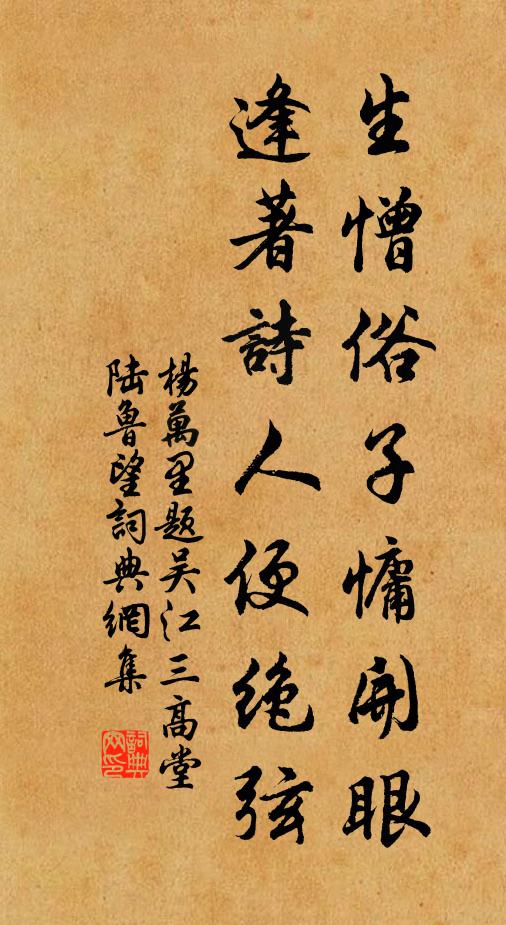 生憎俗子慵開眼
逢著詩人便絶弦
楊萬里題吴江三高堂
陆魯望詞典網集
詞典網印